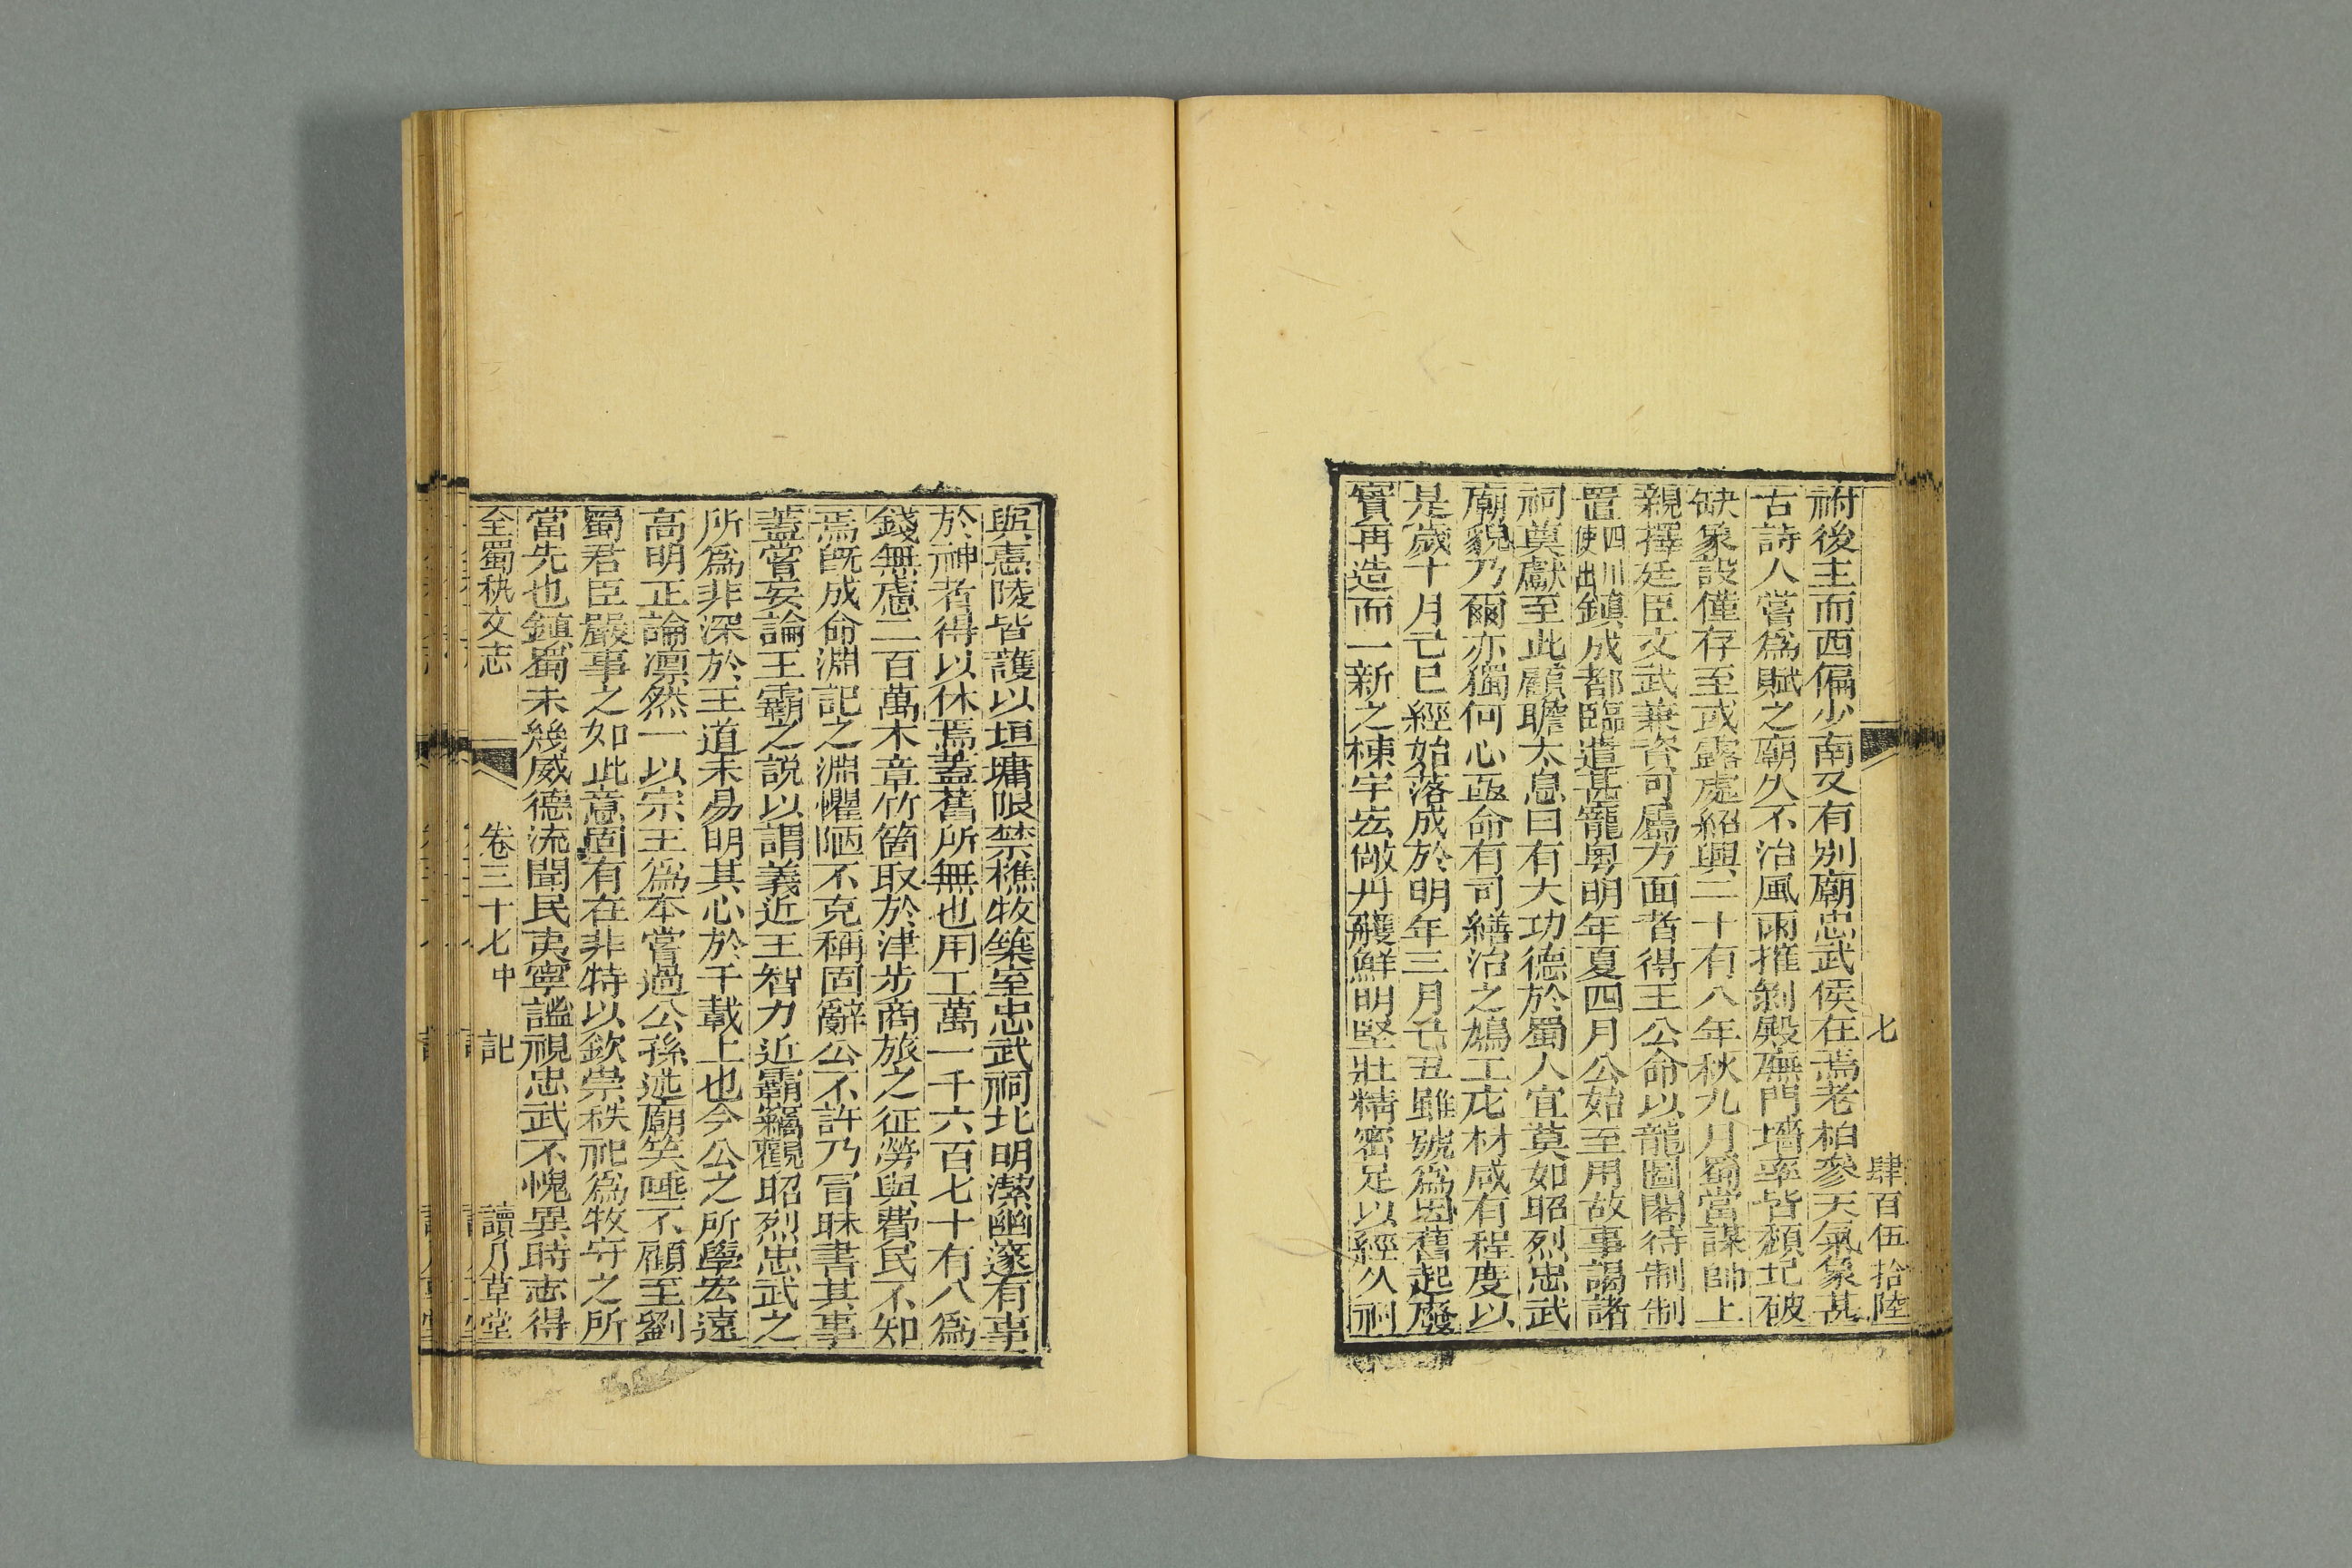 七　肆百伍拾陸
祔後主而西偏少南又有别廟忠武侯在焉老柏參天氣象甚
古詩人嘗爲賦之廟久不治風雨摧剝殿廡門墻率皆頹圮破
缺象設僅存至或露處紹興二十有八年秋九月蜀當謀帥上
親擇廷臣文武兼資可屬方面者得王公命以龍圖閣待制制
置四川使出鎮成都臨遣甚寵粤明年夏四月公始至用故事謁諸
祠奠獻至此顧瞻太息曰有大功德於蜀人宜莫如昭烈忠武
廟貌乃爾亦獨何心亟命有司繕治之鳩工庀材咸有程度以
是歲十月己巳經始落成於明年三月乙丑雖號爲因舊起廢
實再造而一新之棟宇宏敞丹雘鮮明堅壯精密足以經久祠
與惠陵皆護以垣墉限禁樵牧築室忠武祠北明潔幽邃有事
於神者得以休焉蓋舊所無也用工萬一千六百七十有八爲
錢無慮二百萬木章竹箇取於津步商旅之征勞與費民不知
焉旣成命淵記之淵懼陋不克稱固辭公不許乃冒昧書其事
蓋嘗妄論王霸之説以謂義近王智力近霸竊觀昭烈忠武之
所爲非深於王道未易明其心於千載上也今公之所學宏遠
高明正論凛然一以宗王爲本嘗過公孫述廟笑唾不顧至劉
蜀君臣嚴事之如此意固有在非特以欽崇秩祀爲牧守之所
當先也鎮蜀未幾威德流聞民夷寧謐視忠武不愧異時志得
全蜀秇文志　卷三十七中　記　讀月草堂